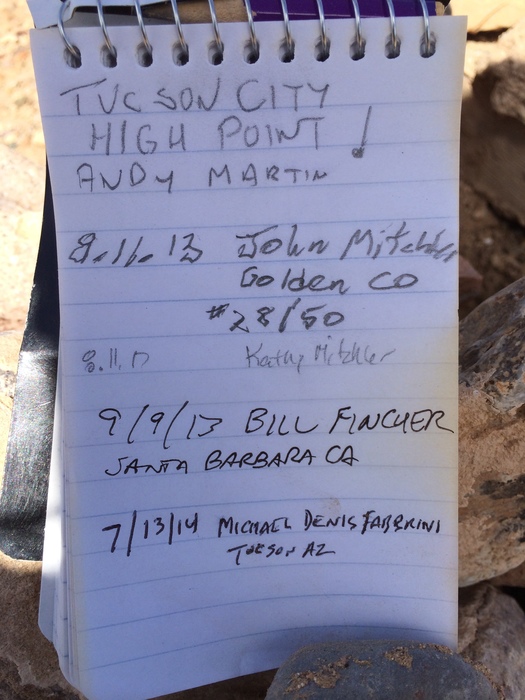 TUCSON CITY
HIGH POINT !
ANDY MARTIN
8.11.13 John Mitchler
Golden CO
#28/50
8.11.13 Kathy Mitchler
9/9/13 BILL FINCHER
SANTA BARBARA CA
7/13/14 MICHAEL DENIS FABBRINI
TUCSON AZ